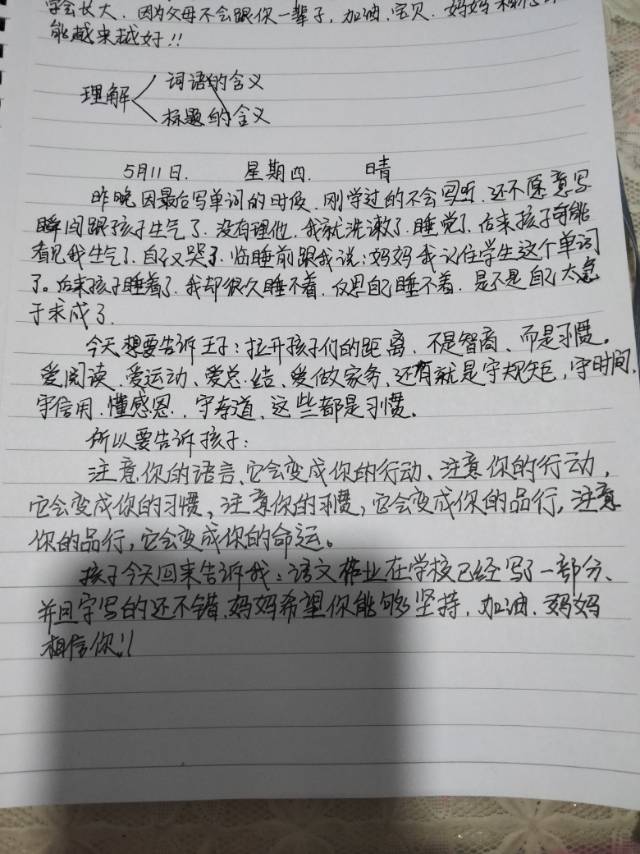 学会长大，因为父母不会跟你一辈子，加油，宝贝，妈妈
能越来越好！！
理解
词语的含义
标题的含义
5月11日. 星期四. 晴
昨晚因最后写单词的时候，刚学过的不会写听，还不愿意写
瞬间跟孩子生气了，没有理他，我就洗漱了，睡觉了，后来孩子可能
看见我生气了，自己又哭了，临睡前跟我说：妈妈我记住学生这个单词
了。后来孩子睡着了，我却很久睡不着，反思自己睡不着，是不是自己太急
于求成了.
今天想要告诉王子：拉开孩子们的距离，不是智商、而是习惯。
爱阅读、爱运动、爱总结、爱做家务、还有就是守规矩，守时间，
守信用、懂感恩、守孝道、这些都是习惯。
所以要告诉孩子：
注意你的语言、它会变成你的行动、注意你的行动，
它会变成你的习惯，注意你的习惯，它会变成你的品行，注意
你的品行，它会变成你的命运。
孩子今天回来告诉我：语文作业在学校已经写了一部分、
并且字写的还不错，妈妈希望你能够坚持，加油，妈妈
相信你！！